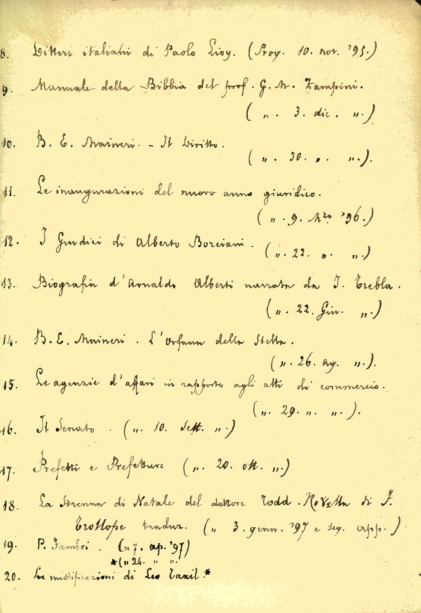 8. Ditteri italiani di Paolo Lioy. (Prov. 10. nov. '95.)
9. Manuale della Bibbia del prof. G. M. Zampini.
( „. 3. dic. „.)
10. B. E. Maineri. - Il Diritto.
( „. 30. „. „.).
11. Le inaugurazioni del nuovo anno giuridico.
( „. 9. Mzo '96.)
12. I Giudici di Alberto Borciani.
( „. 22. „. „.)
13. Biografia d'Arnaldo Alberti narrata da I. Trebla.
( „. 22. Giu. „.)
14. B. E. Maineri. L'Orfana della Stella.
( „. 26. ag. „.).
15. Le agenzie d'affari in rapporto agli atti di commercio.
( „. 29. „. „.).
16. Il Senato. ( „. 10. Sett. „.)
17. Prefetti e Prefetture ( „. 20. ott. „.)
18. La Strenna di Natale del dottore Todd. Novella di F.
Trollope traduz. ( „ 3. genn. '97 e seg. app.)
19. P. Fambri. ( „ 7. ap. '97)
*( „ 24. „ „.
20. Le mistificazioni di Leo Taxil.*